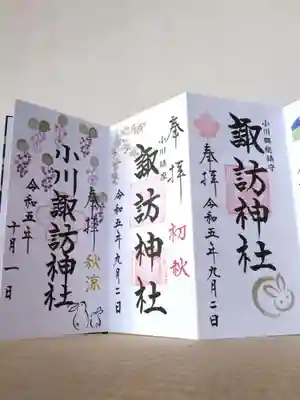 小川郷総鎮守
諏訪神社
奉拝
令和五年九月二日
奉拝
初秋
小川郷総鎮守
諏訪神社
令和五年九月二日
奉拝
秋涼
小川諏訪神社
令和五年
十月一日